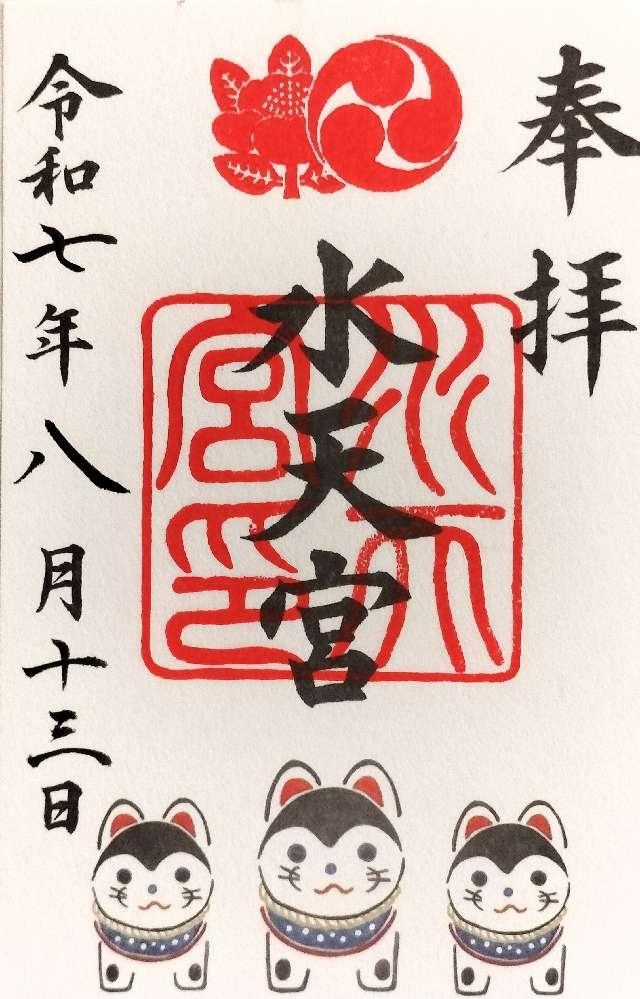 奉拝
水天宮
水天宮印
令和七年八月十三日